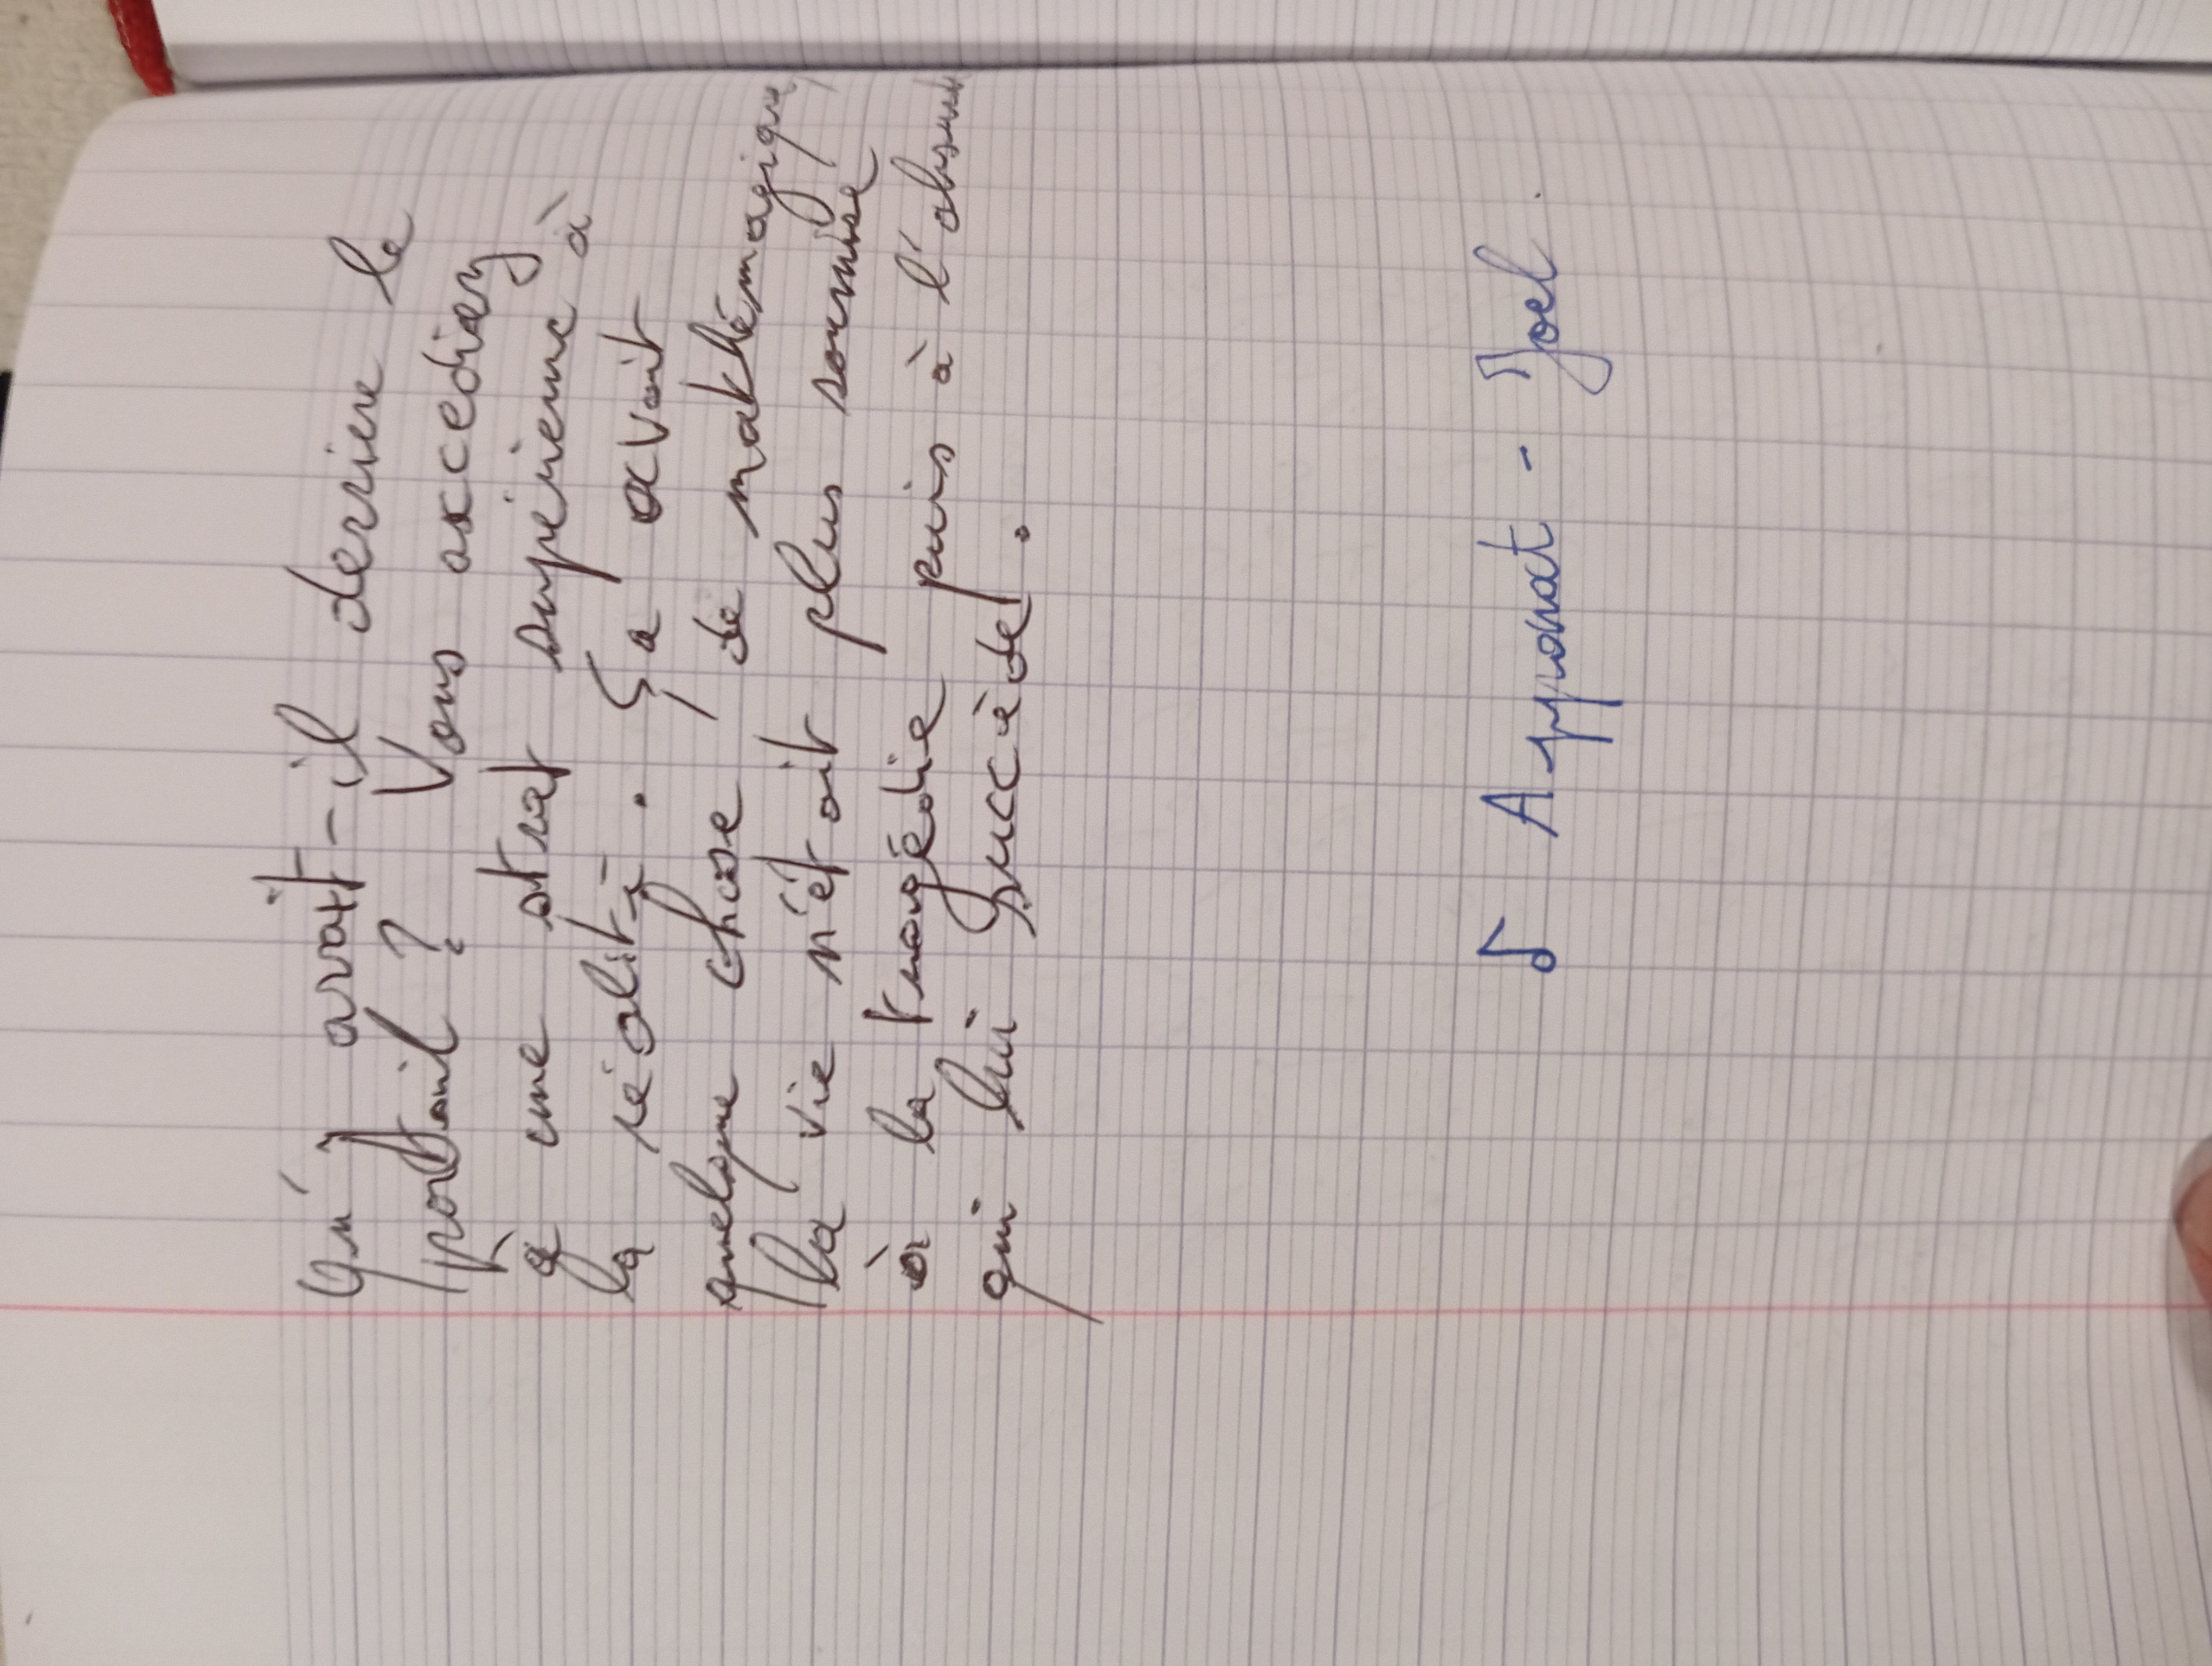 Qu'y avait-il derriere le
portail ? Vous accediez
à une strat supérieure à
la réalité. Ça avait
quelque chose de mathémagique,
la vie n'était plus soumise
à la tragédie puis à l'absurde
qui lui succède.
♪ Apparat - Joel.